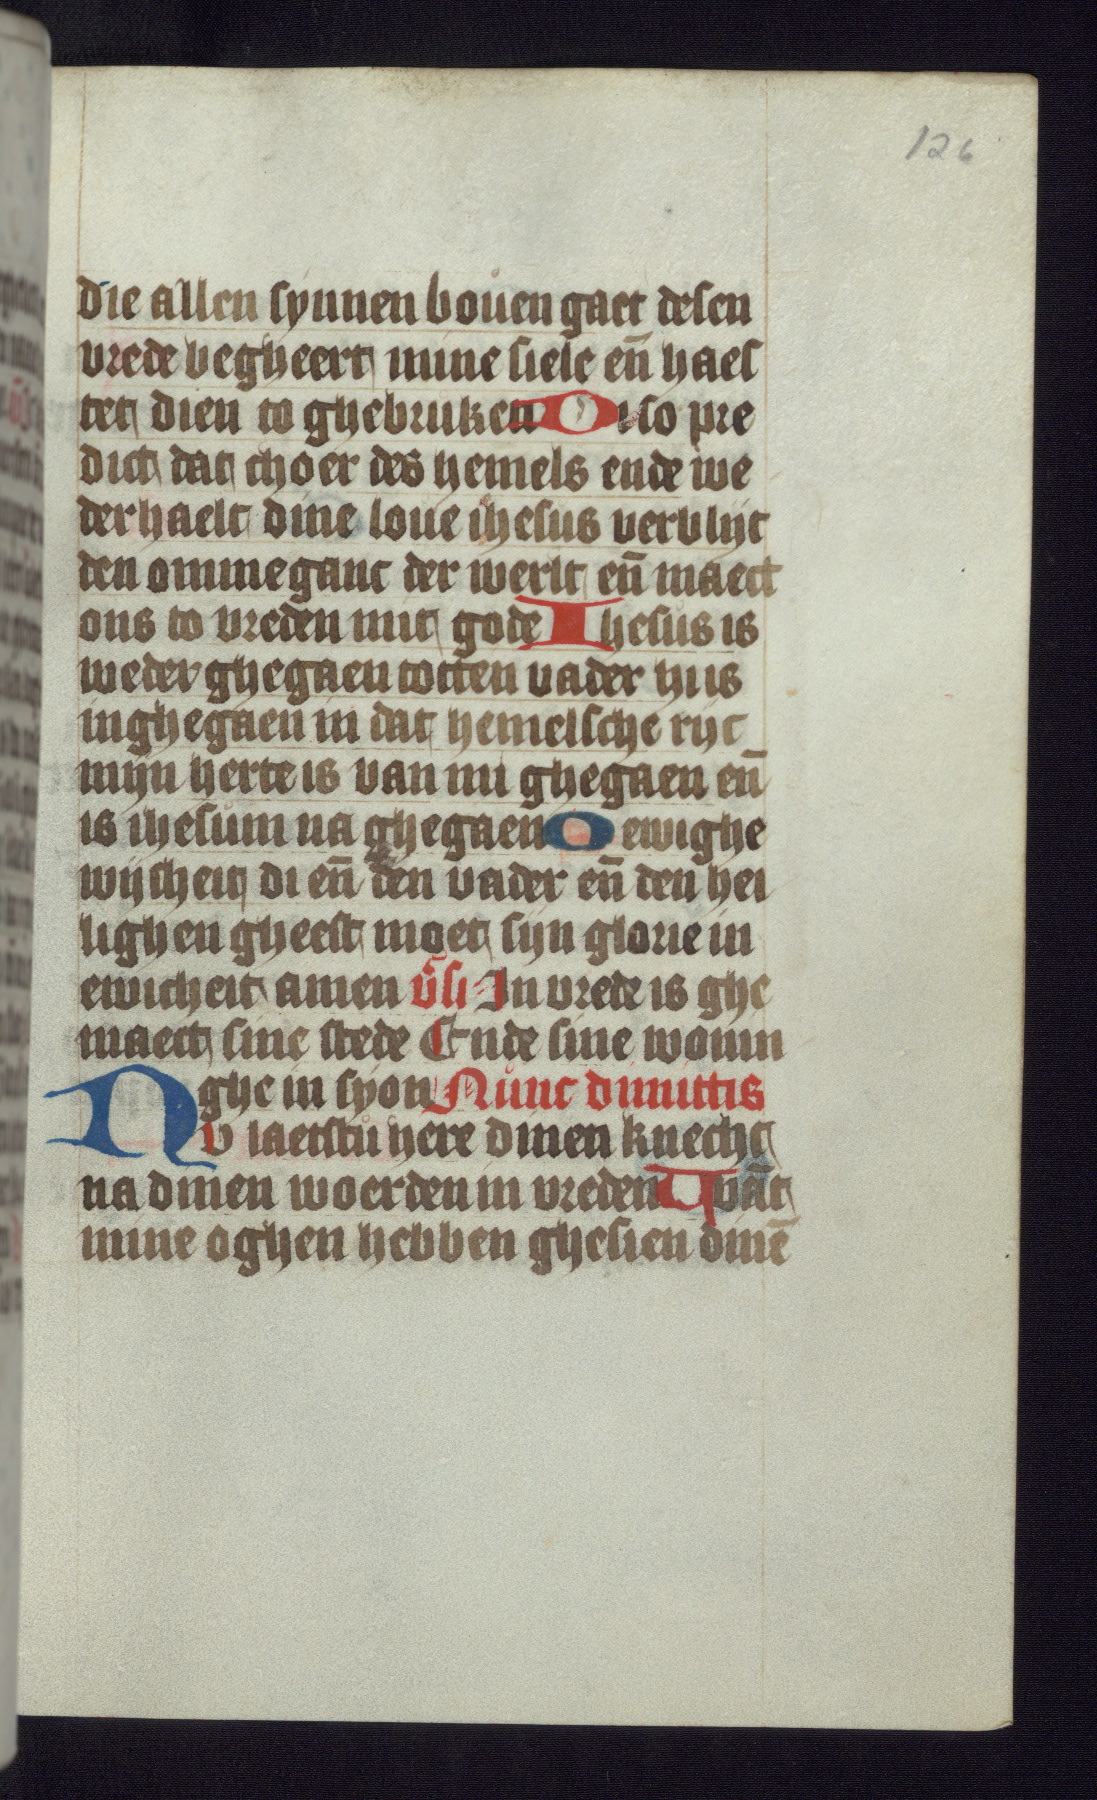 126
die allen synnen bouen gaet desen
vrede begheert mine siele en̄ haes
tet dien to ghebruken Diso pre
dict dat choer des hemels ende we
derhaelt dine loue ihesus verblijt
den ommeganc der werlt en̄ maect
ons to vreden mit gode Ihesus is
weder ghegaen totten vader hi is
inghegaen in dat hemelsche rijc
mijn herte is van mi ghegaen en̄
is ihesum na ghegaen O ewighe
wijsheit di en̄ den vader en̄ den hei
lighen gheest moet sijn glorie in
ewicheit amen v̄si In vrede is ghe
maect sine stede Ende sine wonin
ghe in syon Nunc dimittis
Nv laetstu here dinen knecht
na dinen woerden in vreden Want
mine oghen hebben ghesien dinē